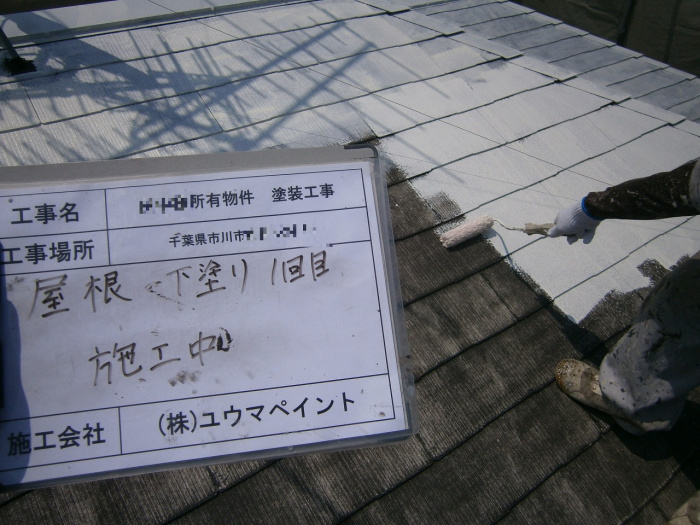 工事名 所有物件 塗装工事
工事場所 千葉県市川市
屋根 下塗り 1回目
施工中
施工会社 (株)ユウマペイント